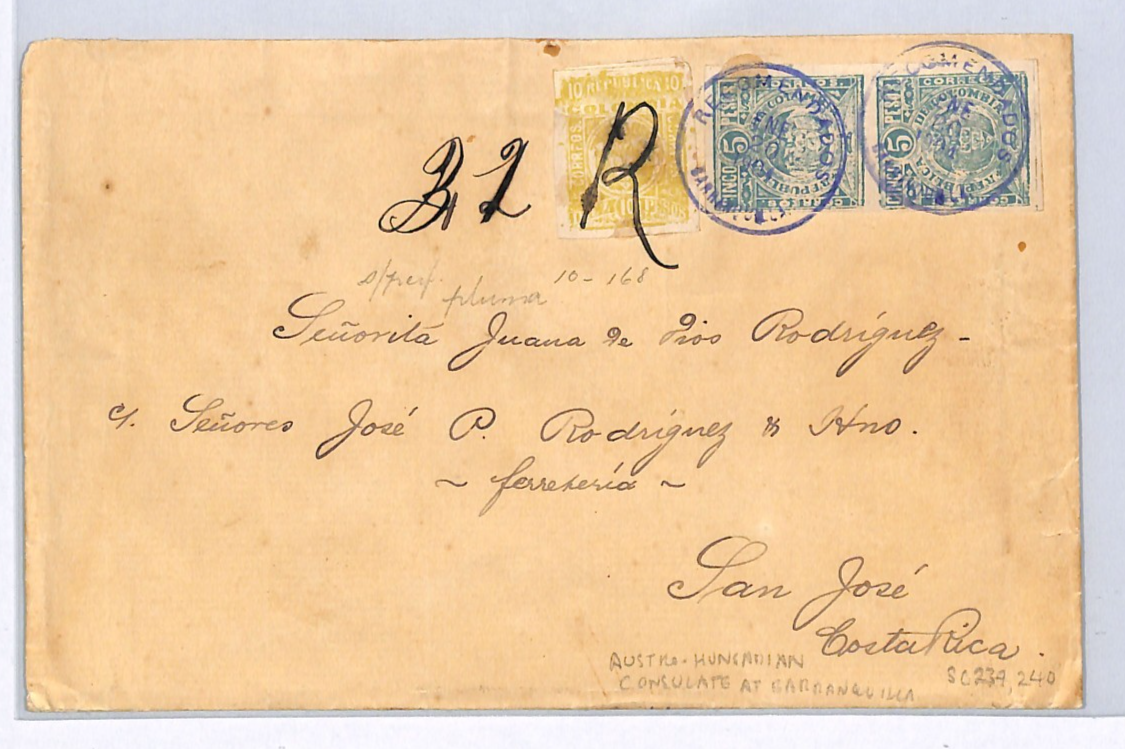 10 REPUBLICA 10
CORREOS
10 PESOS
CORREOS
DE COLOMBIA
REPUBLICA
CINCO 5 PESOS
CORREOS
CORREOS
DE COLOMBIA
REPUBLICA
CINCO 5 PESOS
RECOMENDADOS
ENE
BARRANQUILLA
RECOMENDADOS
R
s/perf. 10-168
pluma
Señorita Juana de Dios Rodríguez -
c/. Señores José P. Rodríguez & Hno.
~ ferretería ~
San José
Costa Rica.
AUSTRO-HUNGARIAN
CONSULATE AT BARRANQUILLA
SC 239, 240